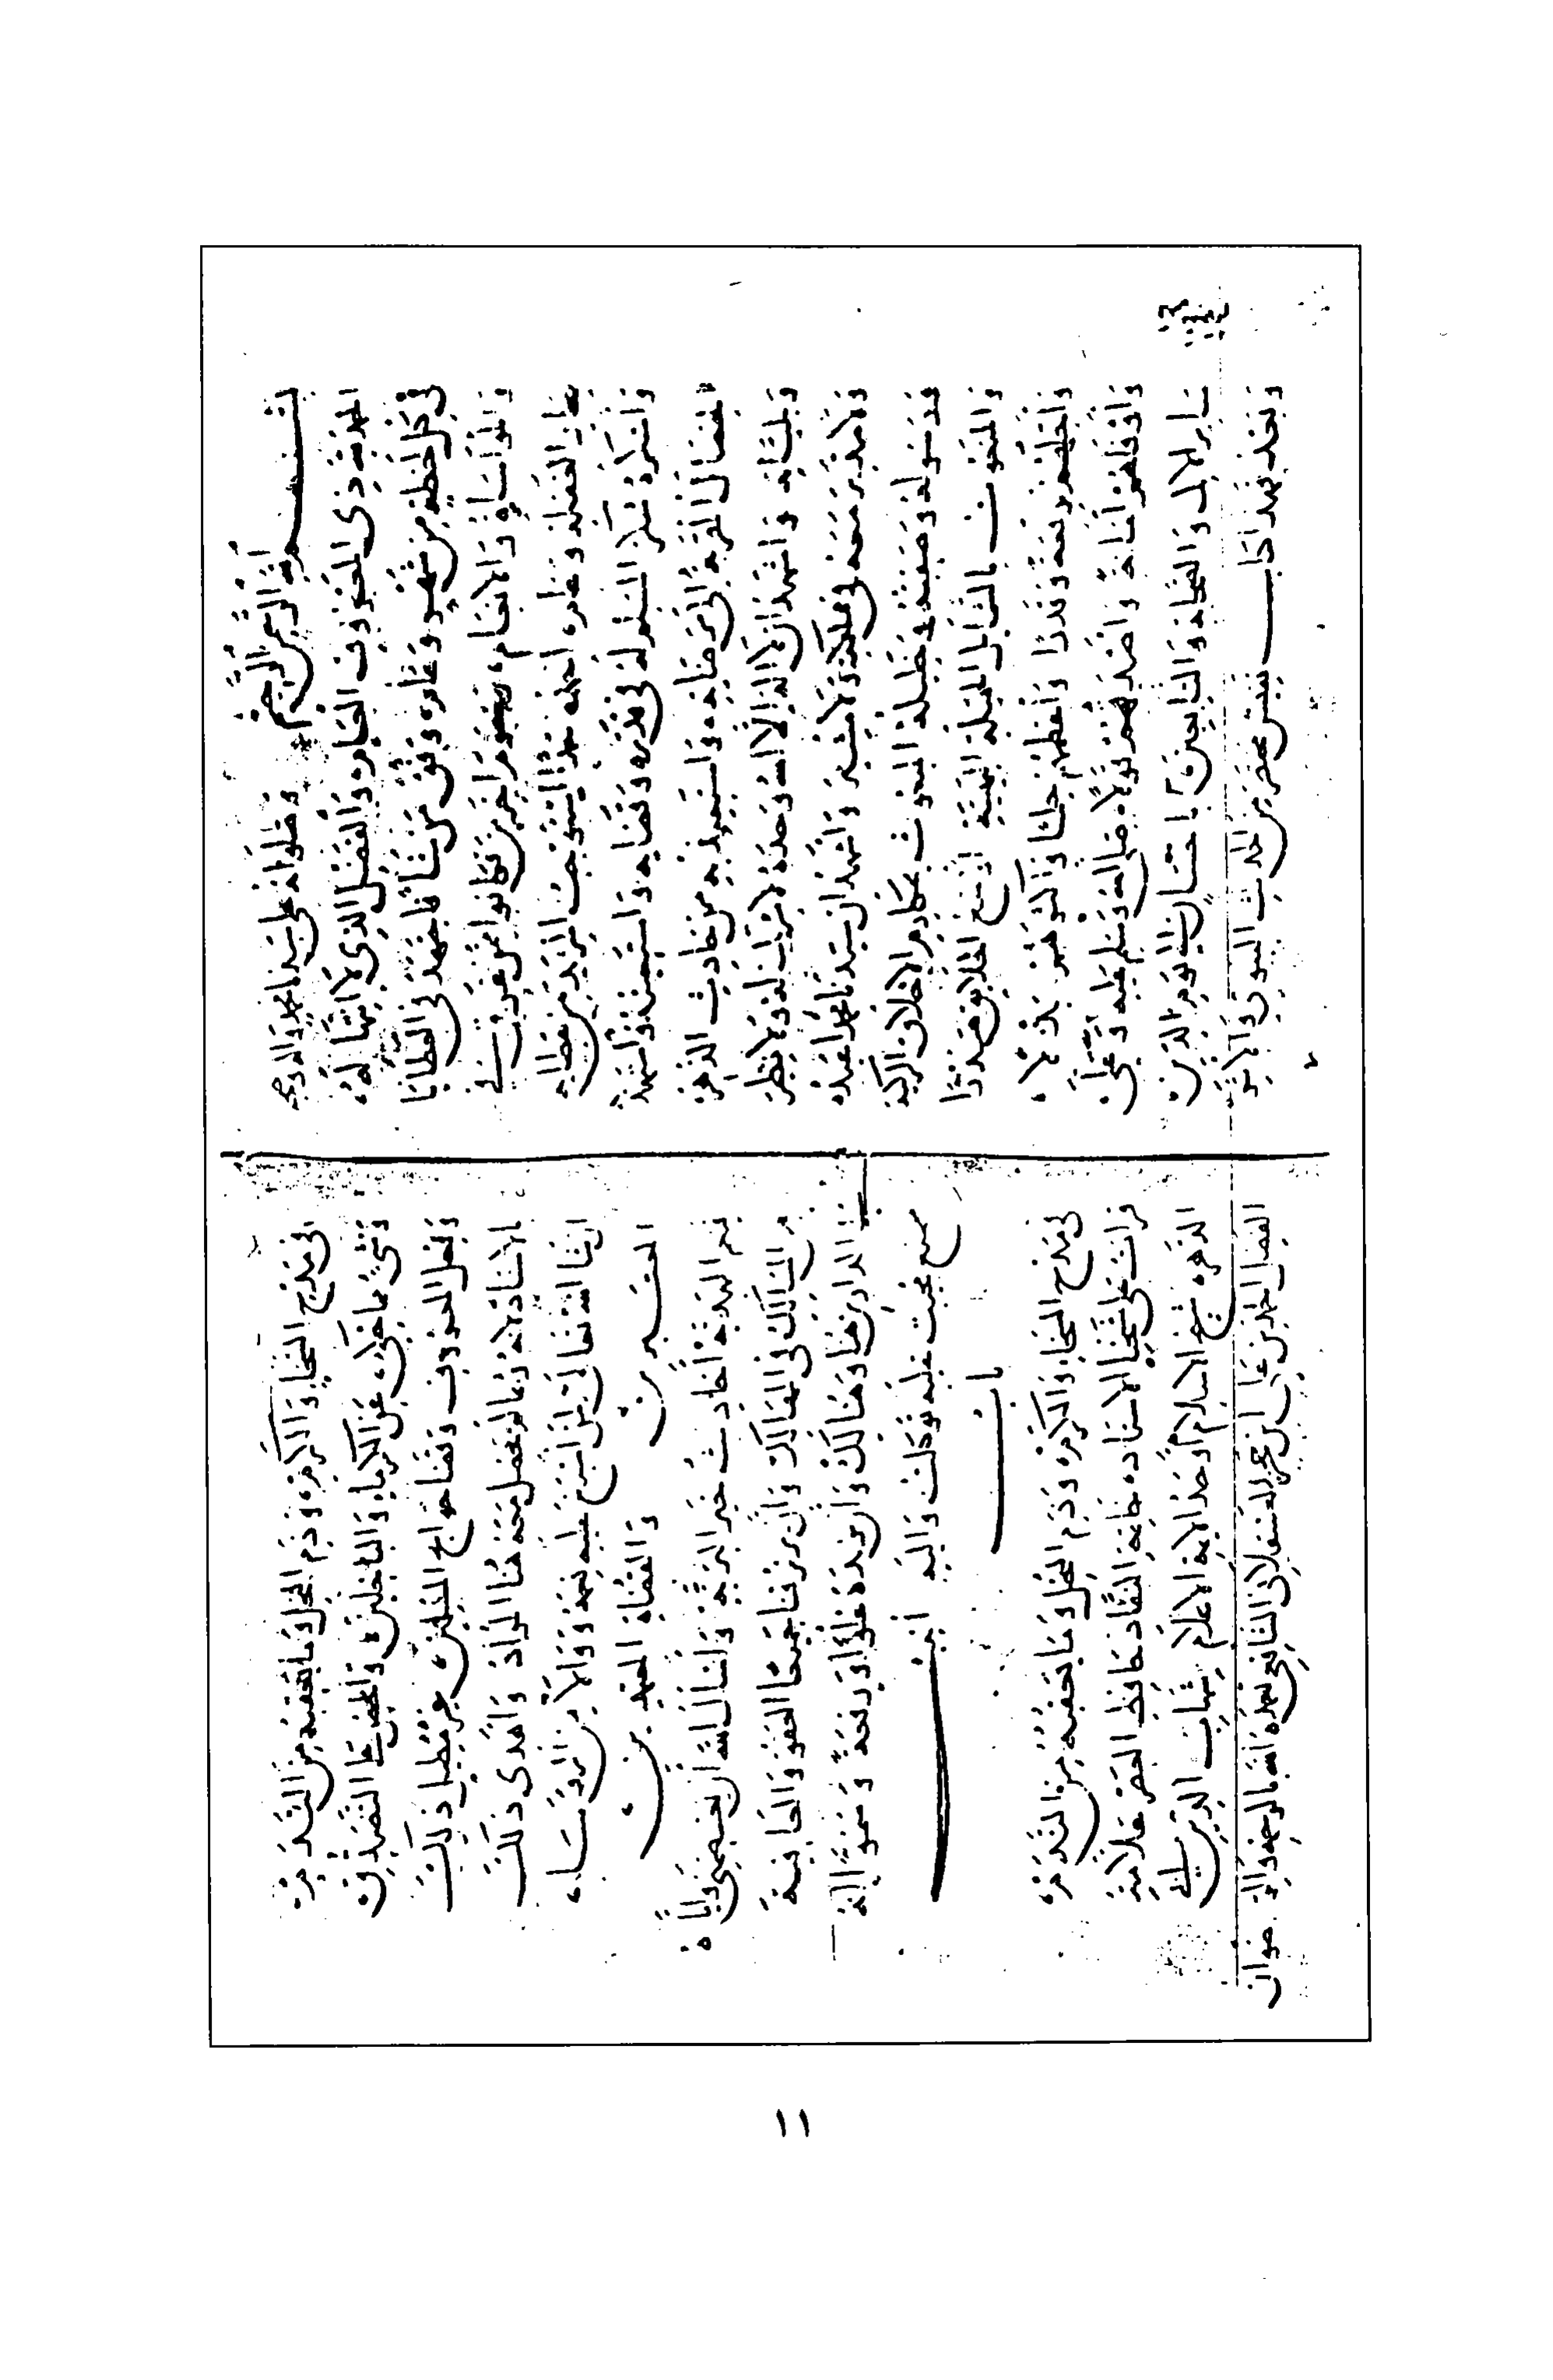 بسم الله الرحمن الرحيم وصلى الله على سيدنا محمد وآله وصحبه
الحمد لله ذي المعروف المعتاد والفضل الذي لا انتهاء له
في كل لحظة من شهر وعام وفق من شاء فاجتهد في العطايا
والمواساة والانعام من تكانوا ممن عرف في
بعلي الفضل وغامره احمده حمدا يستوجب المزيد من عطايه
واشكره شكر المسلم له في قدره وقضايه واستعينه واستمده
افضال المقربة الى مرضاته واستعيذ به من حادث الدهر
وبلياته واشهد ان لا اله الا الله وحده لا شريك له ولا نظير
ولا مدبر معه في ملكه ولا مشير واشهد ان سيدنا محمدا عبده
ورسوله وصفيه وخليله المبعوث بمكارم الاخلاق الزكية
والمنعوت بالشمايل الجميلة البهية اوسع الخلايق صدرا
واعظمهم رفعة وقدرا واعظمهم جنابا واكثرهم بذلا
واوفاهم امانة واصدقهم قولا صلى الله وسلم عليه وعلى
ساير الآل والصحابة والتابعين باحسان الى يوم الدين
وبعد فهذا كتاب نفيس مختصر من الحديث النبوي والاثر
في مدح السخاء والكرم وذم البخل وما يعقبه من الندم
وشيء مما حكي عن الكرماء والباخلين والحض على التصدق
وبفعل المعروف وقضا حوايج المسلمين غير مطيل ذلك
بالاسناد لانه ربما لم يحصل معه هنا المراد واهدى ذلك
ان شا الله تعالى لمن اسبغ عليه نعمه ووالا من الرؤساء
المعتبرين والقضاة المهتدين
نعم الهدية احاديث خير البرية ونسأل الله ان يعصمني واياه
من المهالك في المسالك وان يرزقنا جميعا العفو والعافية
في الدارين هنا وهنالك وان يزيده علوا ورفعة وسموا انه
سميع مجيب عليه توكلت واليه انيب
باب
في مدح السخاء والكرم وذم البخل وما يعقبه من الندم
قرات على شيخنا الاستاذ خاتمة النقاد حافظ العصر علامة
الدهر شيخ الاسلام اوحد الائمة الاعلام شهاب الدين ابي
الفضل احمد بن علي ابن حجر العسقلاني الشافعي تغمده الله بالرحمة والرضوان
١١